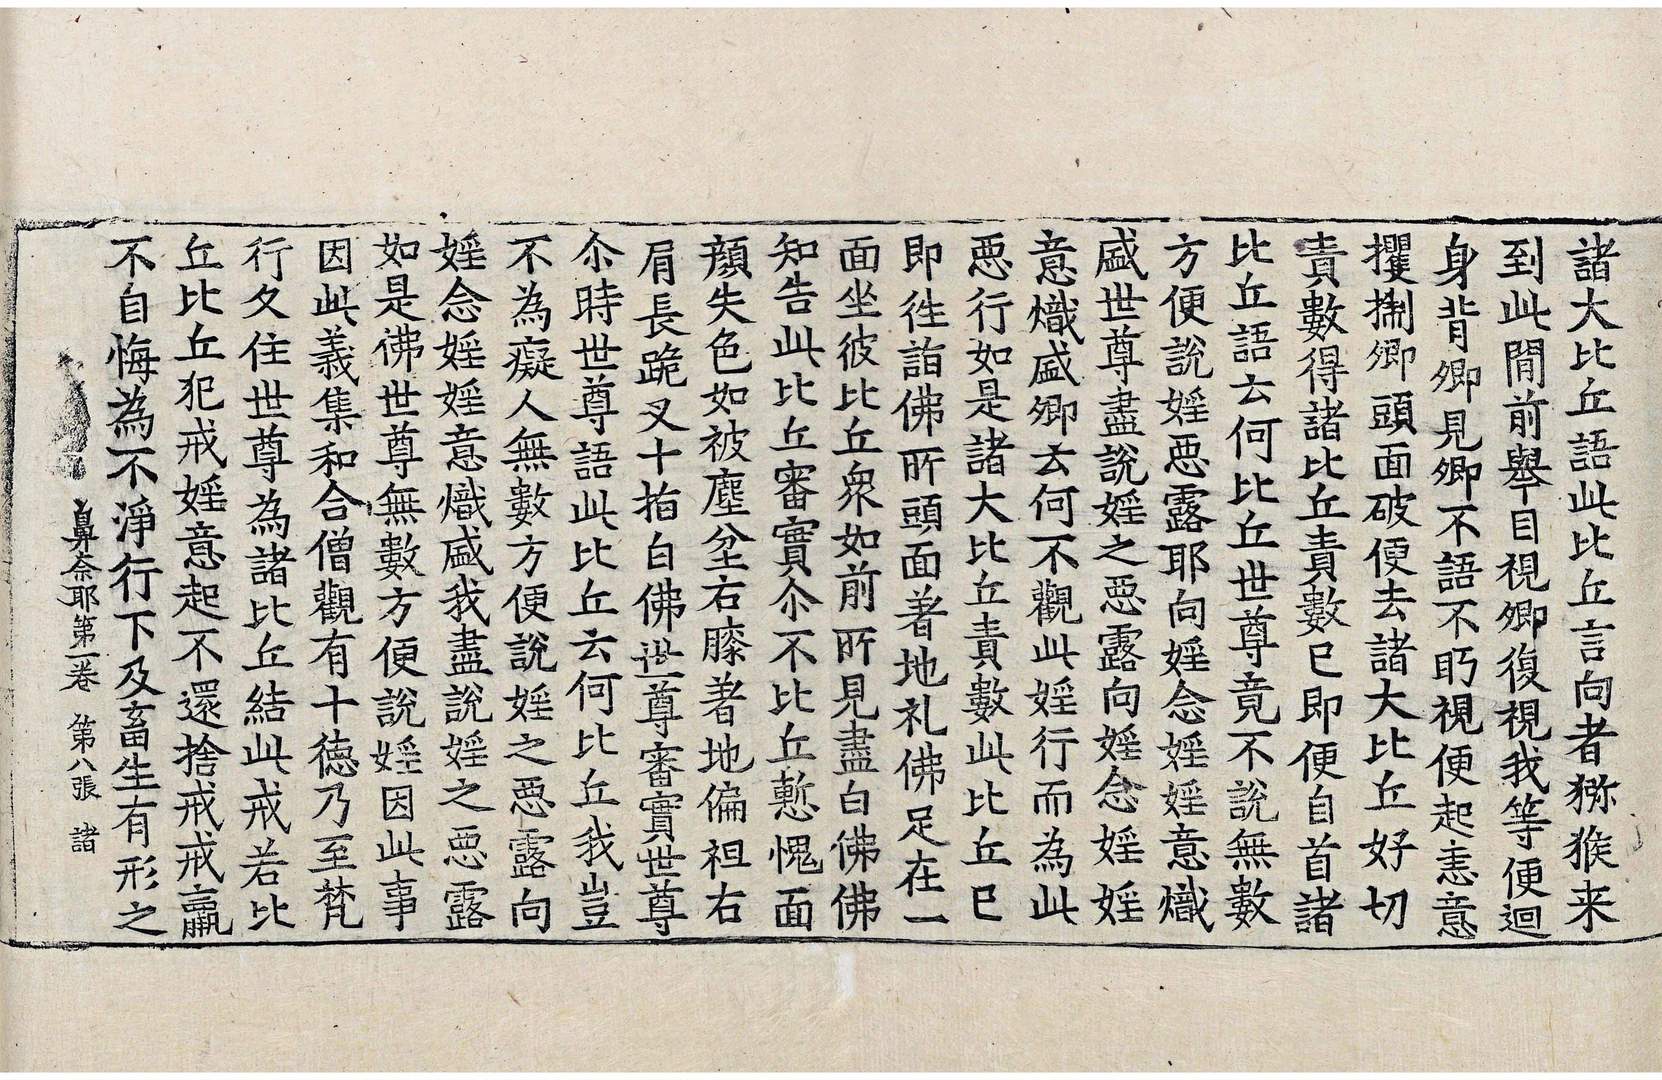 諸大比丘語此比丘言向者猕猴来
到此間前舉目視卿復視我等便迴
身背卿見卿不語不眄視便起恚意
攫㨷卿頭面破便去諸大比丘好切
責數得諸比丘責數已即便自首諸
比丘語云何比丘世尊竟不說無數
方便說婬惡露耶向婬念婬婬意熾
盛世尊盡說婬之惡露向婬念婬婬
意熾盛卿云何不觀此婬行而為此
惡行如是諸大比丘責數此比丘已
即往詣佛所頭面著地礼佛足在一
面坐彼比丘衆如前所見盡白佛佛
知告此比丘審實尒不比丘慙愧面
顏失色如被塵坌右膝著地偏袒右
肩長跪叉十指白佛世尊審實世尊
尒時世尊語此比丘云何比丘我豈
不為癡人無數方便說婬之惡露向
婬念婬婬意熾盛我盡說婬之惡露
如是彿世尊無數方便說婬因此事
因此義集和合僧觀有十德乃至梵
行久住世尊為諸比丘結此戒若比
丘比丘犯戒婬意起不還捨戒戒羸
不自悔為不淨行下及畜生有形之
鼻奈耶第一卷 第八張 諸